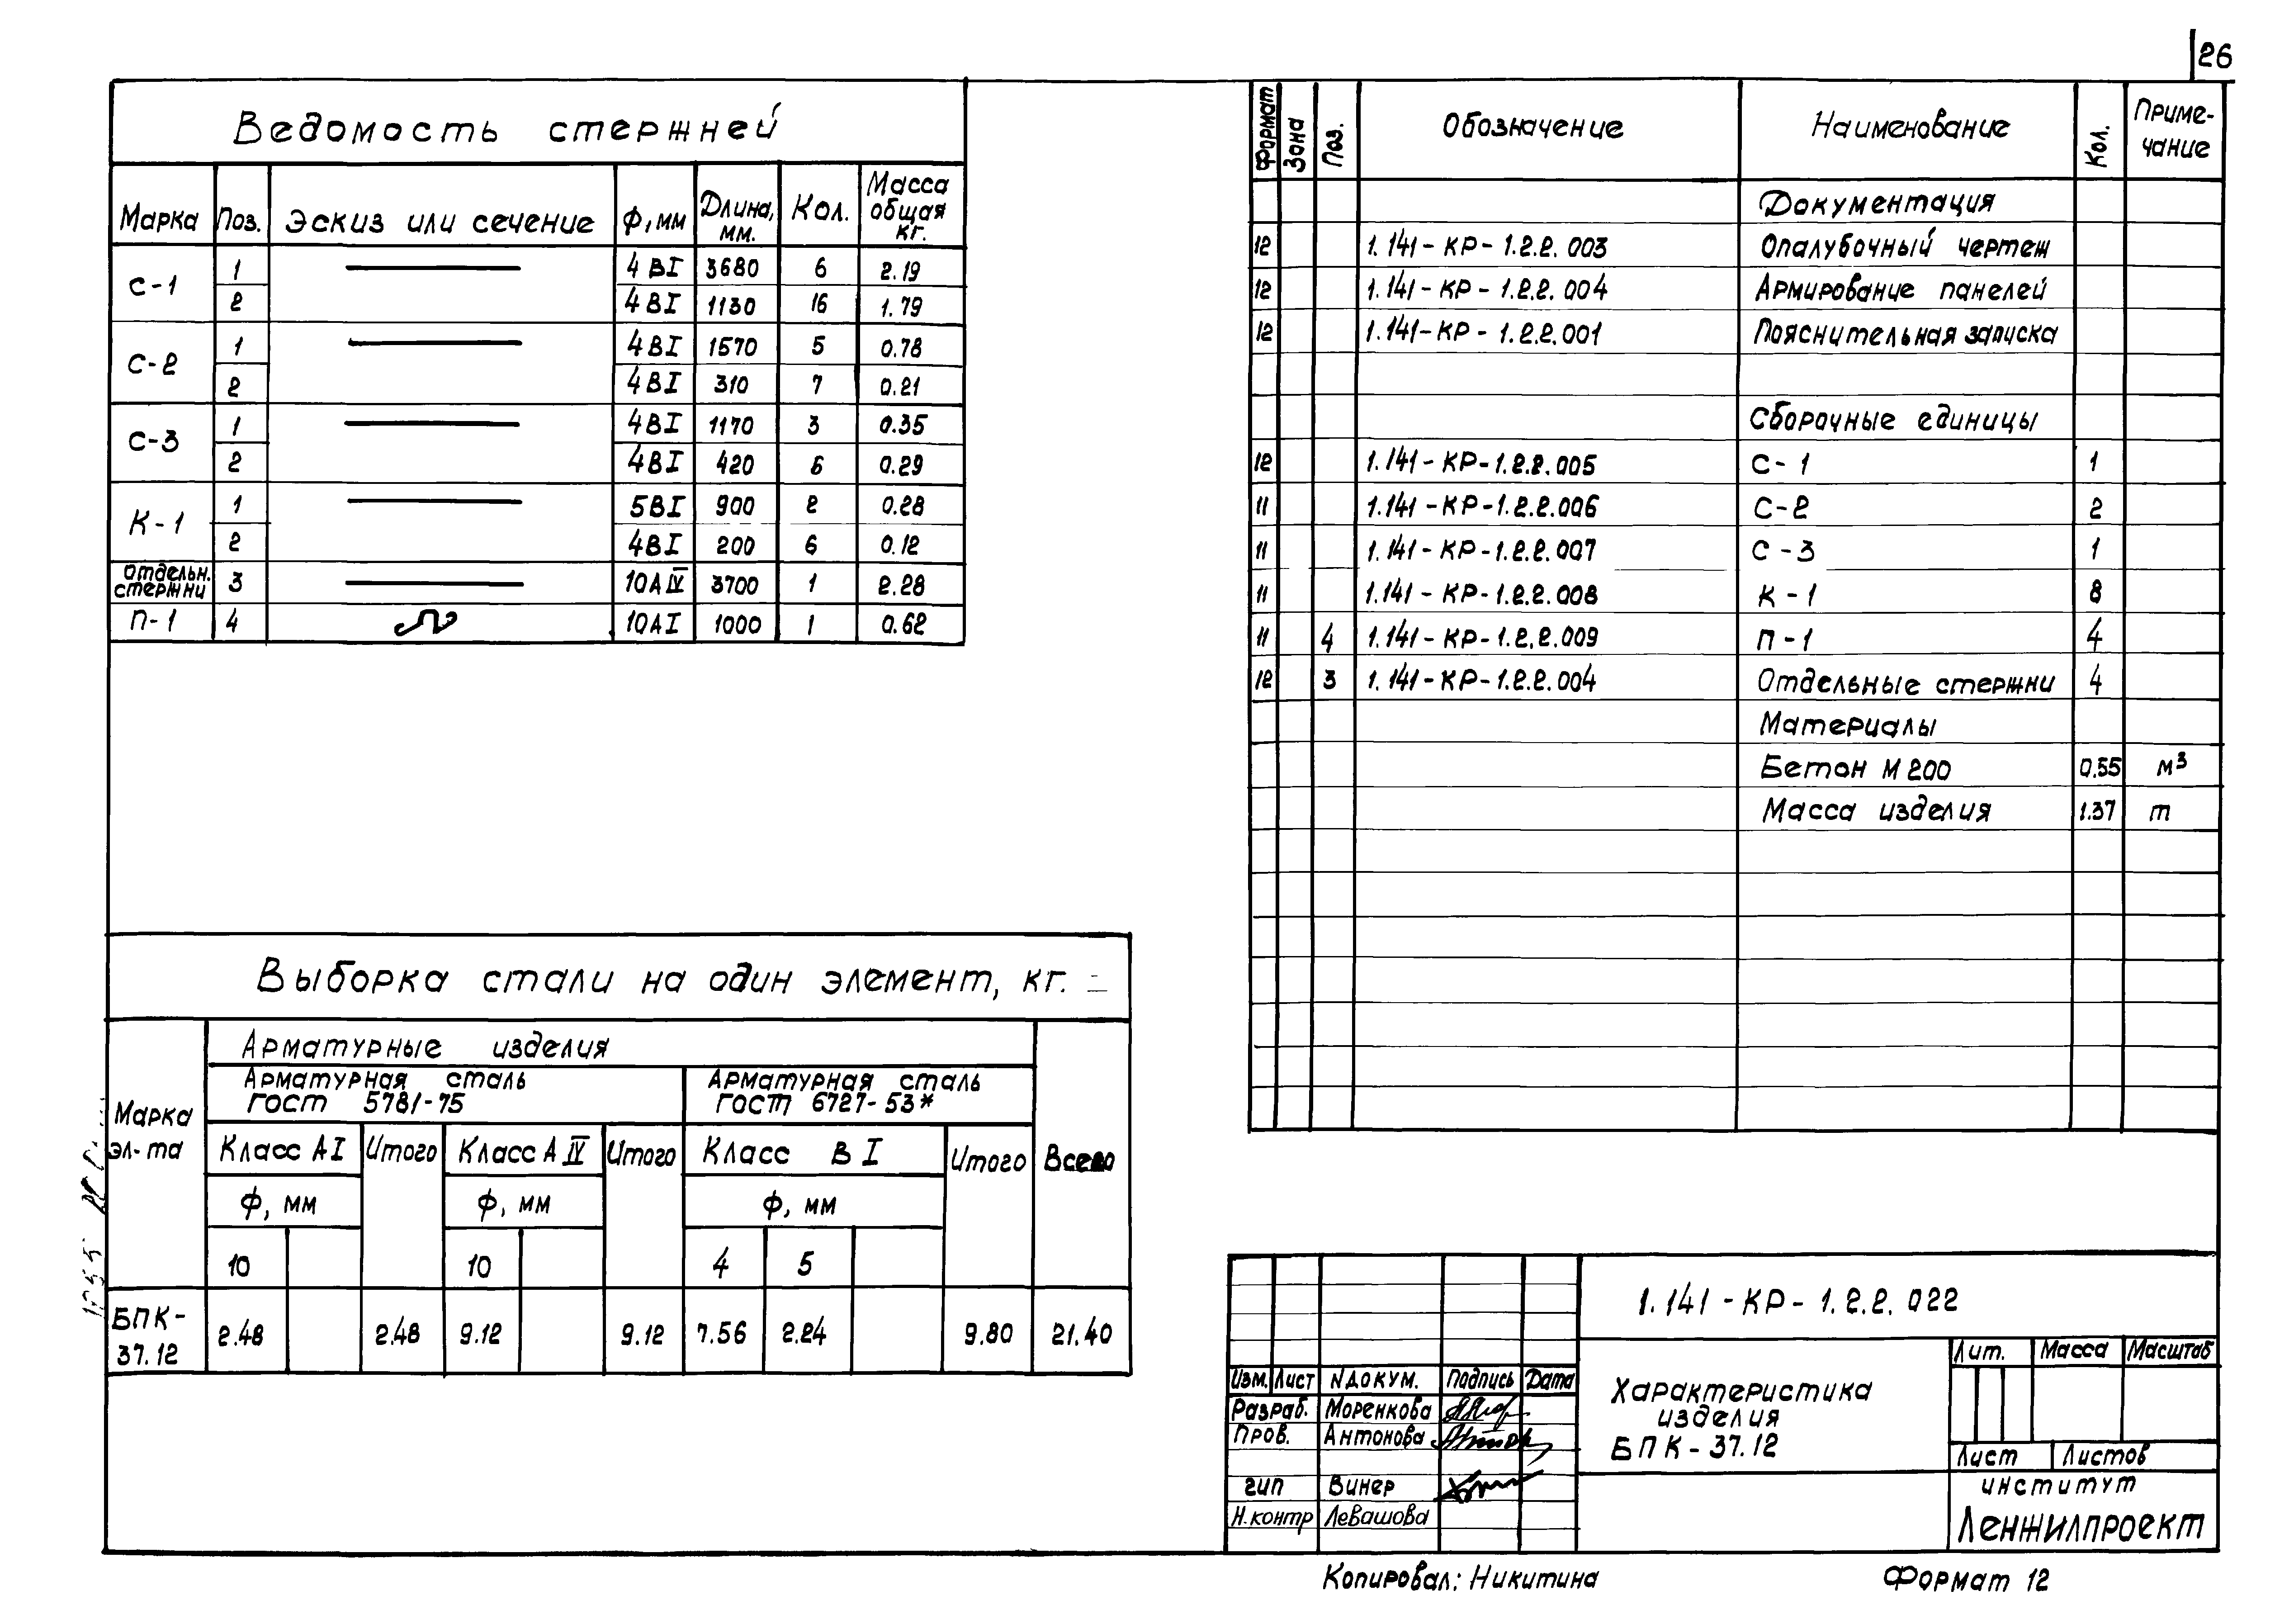 26
Ведомость стержней
Марка Поз. Эскиз или сечение Ф, мм Длина, мм. Кол. Масса общая кг.
С-1 1 4 ВI 3680 6 2.19
2 4 ВI 1130 16 1.79
С-2 1 4 ВI 1570 5 0.78
2 4 ВI 310 7 0.21
С-3 1 4 ВI 1170 3 0.35
2 4 ВI 420 6 0.29
К-1 1 5 ВI 900 2 0.28
2 4 ВI 200 6 0.12
отдельн. стержни 3 10 А IV 3700 1 2.28
П-1 4 10 А I 1000 1 0.62
Выборка стали на один элемент, кг.
Марка эл-та
Арматурные изделия
Арматурная сталь ГОСТ 5781-75
Арматурная сталь ГОСТ 6727-53*
Класс А I Итого Класс А IV Итого Класс В I Итого Всего
Ф, мм Ф, мм Ф, мм
10 10 4 5
БПК-37.12 2.48 2.48 9.12 9.12 7.56 2.24 9.80 21.40
Формат Зона Поз. Обозначение Наименование Кол. Приме-чание
Документация
12 1.141-КР-1.2.2.003 Опалубочный чертеж
12 1.141-КР-1.2.2.004 Армирование панелей
12 1.141-КР-1.2.2.001 Пояснительная записка
Сборочные единицы
12 1.141-КР-1.2.2.005 С-1 1
11 1.141-КР-1.2.2.006 С-2 2
11 1.141-КР-1.2.2.007 С-3 1
11 1.141-КР-1.2.2.008 К-1 8
11 4 1.141-КР-1.2.2.009 П-1 4
12 3 1.141-КР-1.2.2.004 Отдельные стержни 4
Материалы
Бетон М 200 0.55 м³
Масса изделия 1.37 т
1.141-КР-1.2.2.022
Изм. Лист N докум. Подпись Дата
Разраб. Моренкова
Пров. Антонова
гип Винер
Н.контр Левашова
Характеристика
изделия
БПК-37.12
Лит. Масса Масштаб
Лист Листов
институт
Ленжилпроект
Копировал: Никитина Формат 12